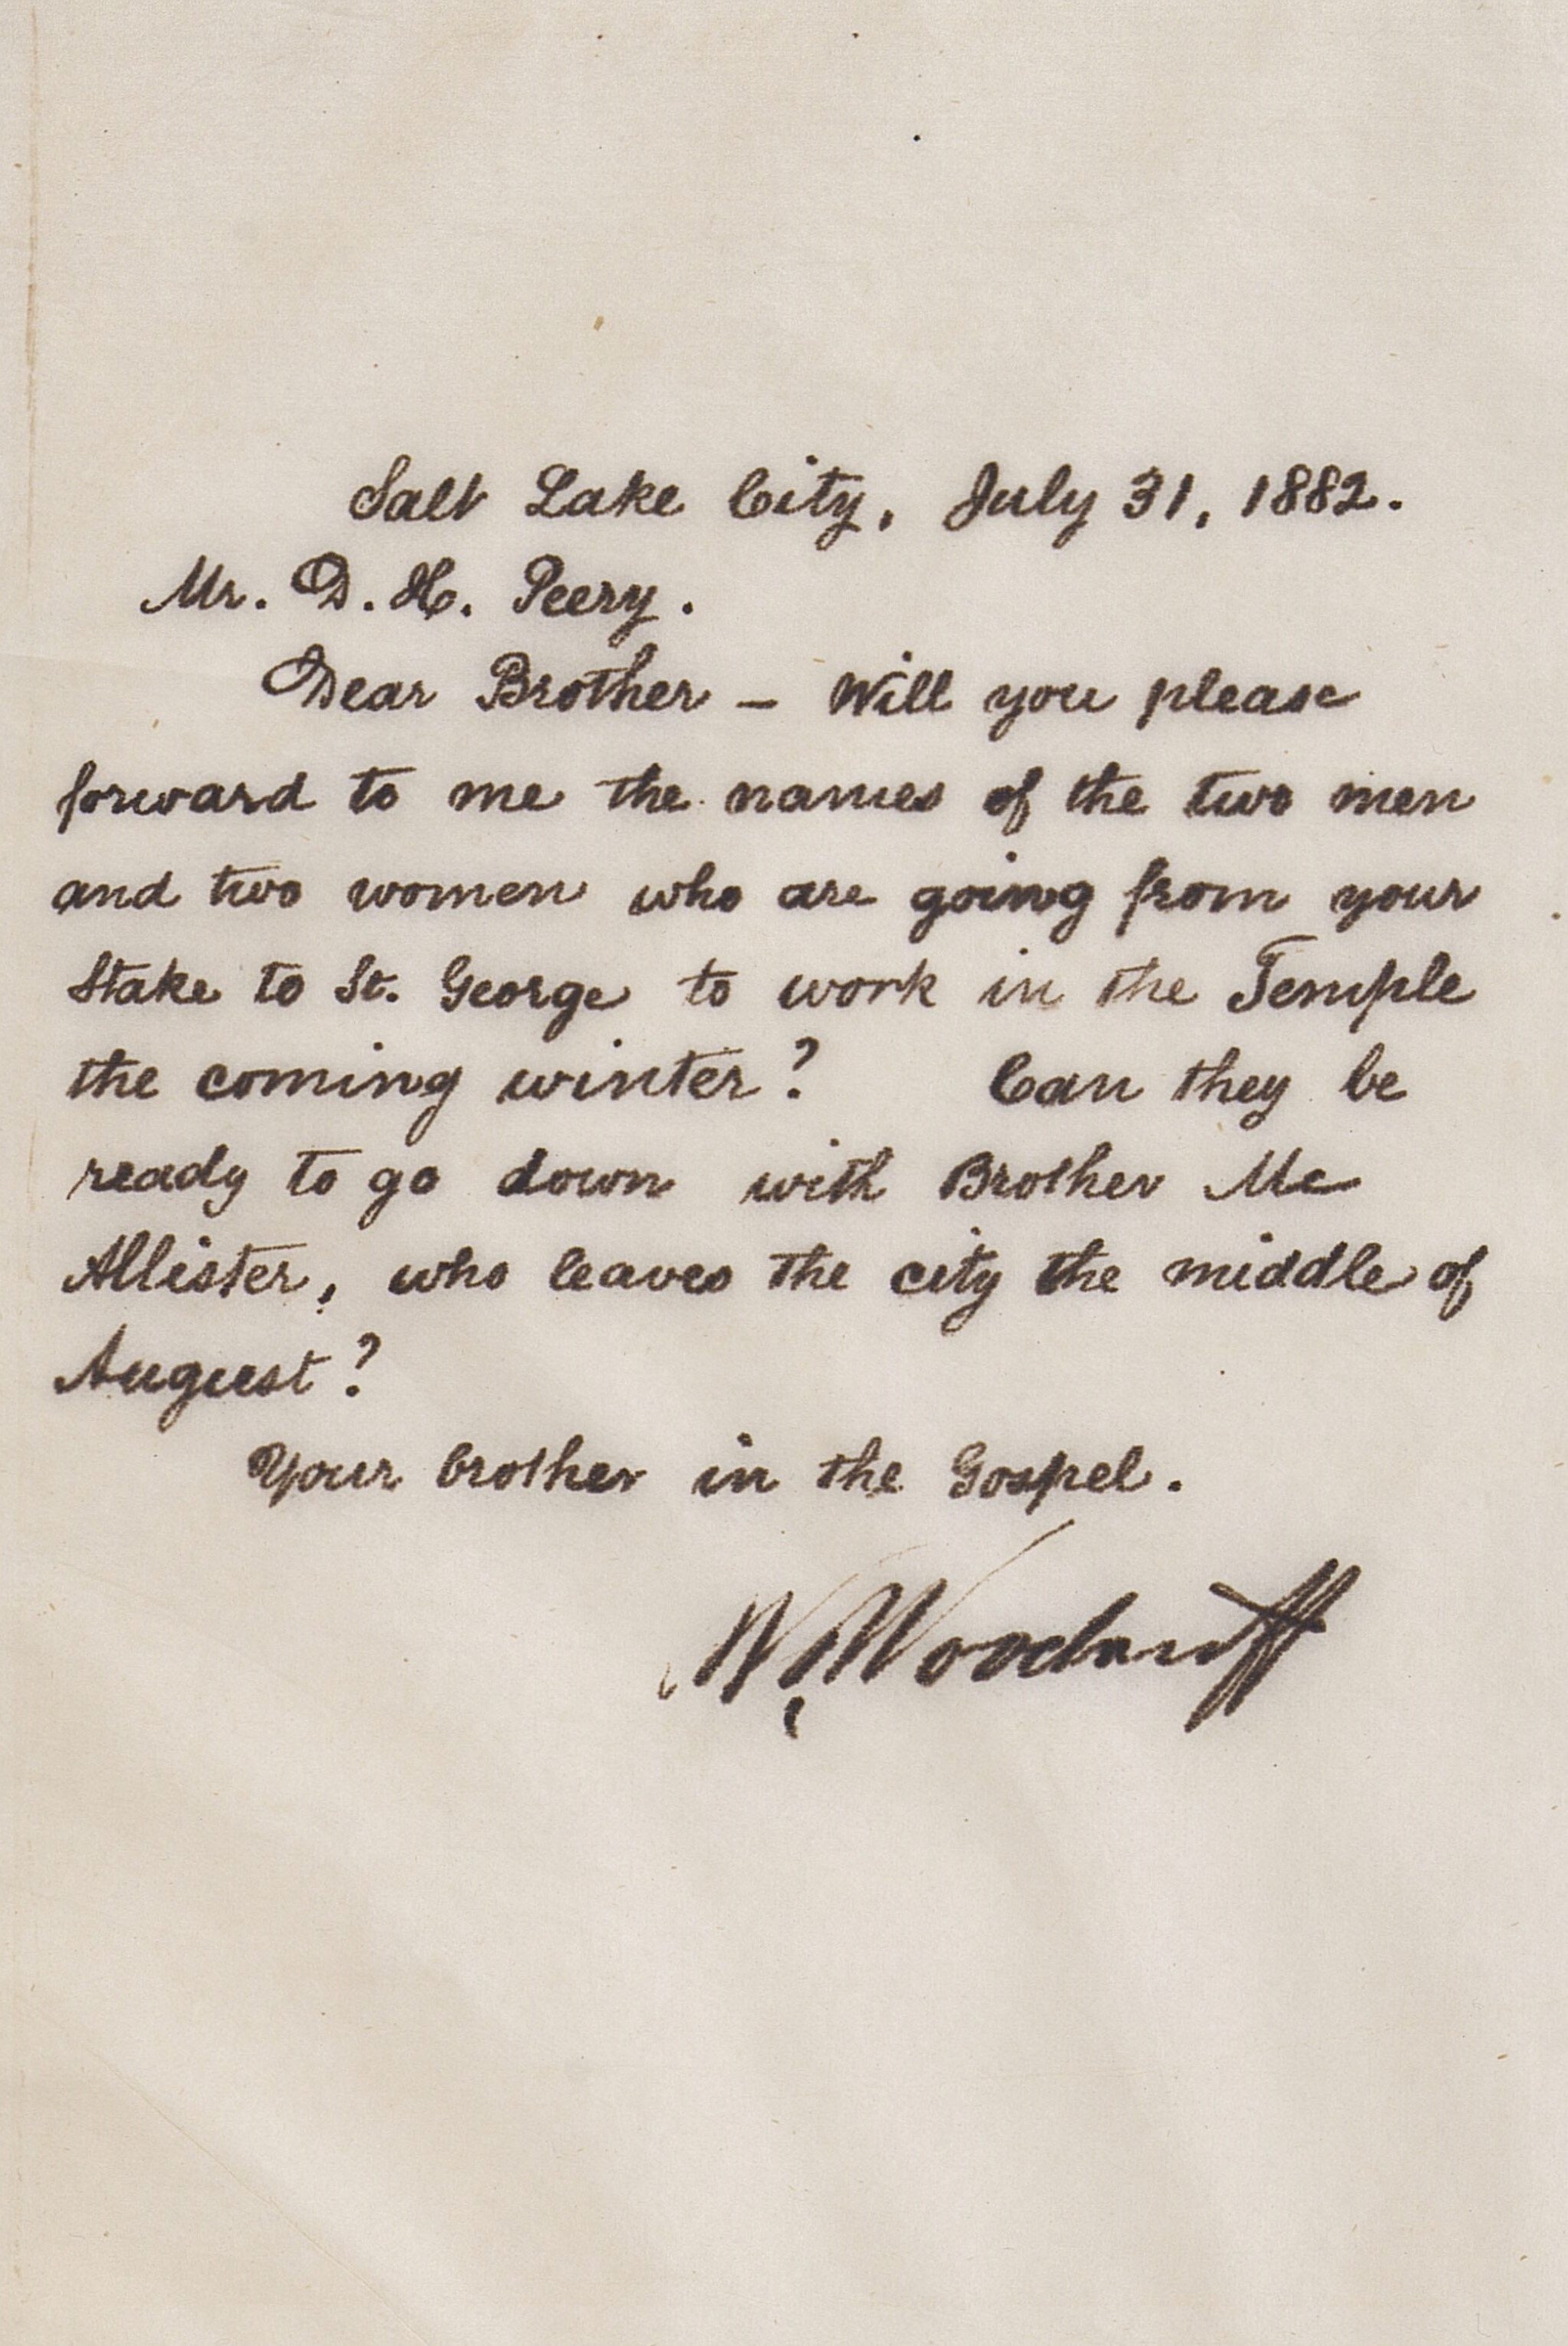 Salt Lake City, July 31, 1882.
Mr. D. H. Peery.
Dear Brother – Will you please
forward to me the names of the two men
and two women who are going from your
Stake to St. George to work in the Temple
the coming winter? Can they be
ready to go down with Brother Mc
Allister, who leaves the city the middle of
August?
Your brother in the Gospel.
W. Woodruff